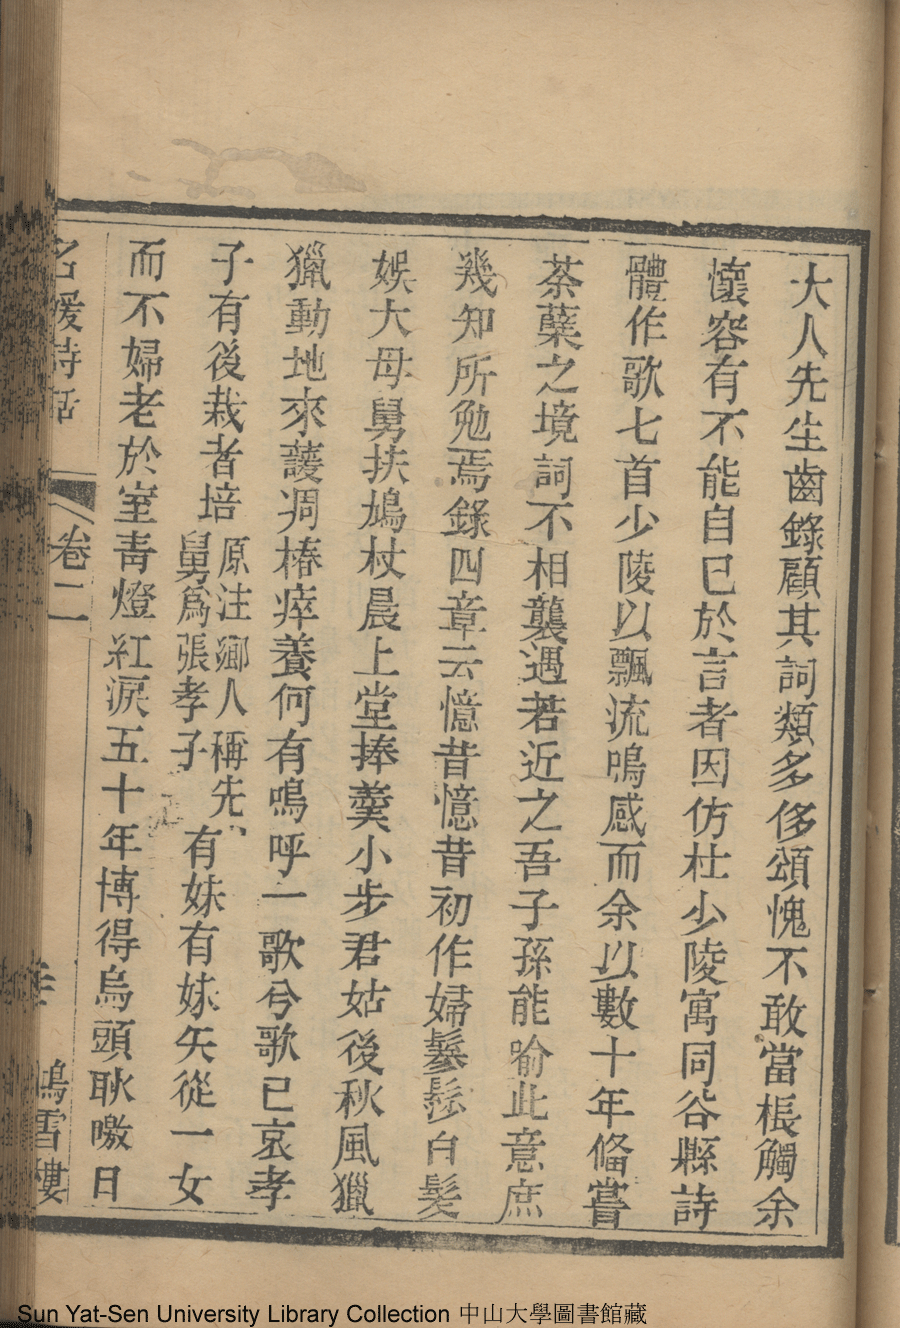 大人先生齒錄顧其詞類多侈頌愧不敢當棖觸余
懷容有不能自已於言者因仿杜少陵寓同谷縣詩
體作歌七首少陵以飄流鳴感而余以數十年備嘗
荼蘗之境詞不相襲遇若近之吾子孫能喻此意庶
幾知所勉焉錄四章云憶昔憶昔初作婦鬖髿白髮
娛大母舅扶鳩杖晨上堂捧羹小步君姑後秋風獵
獵動地來護凋椿瘁養何有嗚呼一歌兮歌已哀孝
子有後栽者培原注鄉人稱先舅爲張孝子有妹有妹矢從一女
而不婦老於室靑燈紅淚五十年博得烏頭耿曒日
名媛詩話
卷二
鴻雪樓
Sun Yat-Sen University Library Collection 中山大學圖書館藏